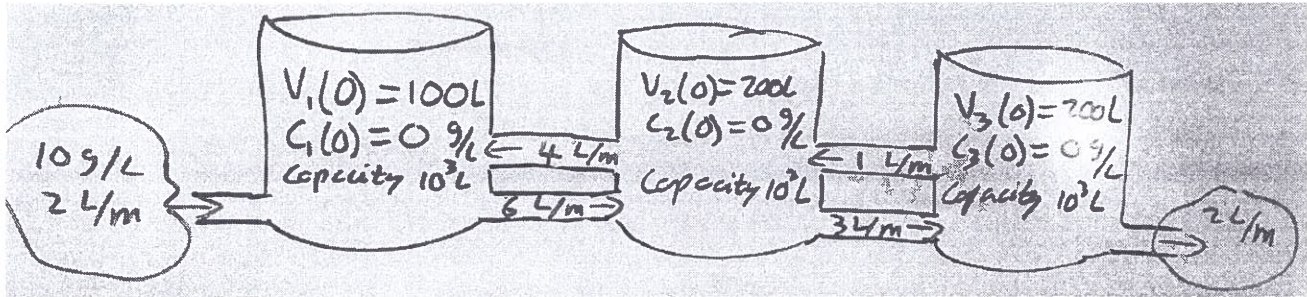 10 g/L
2 L/m
V₁(0) = 100L
C₁(0) = 0 g/L
capacity 10³L
← 4 L/m
6 L/m →
V₂(0) = 200L
C₂(0) = 0 g/L
capacity 10³L
← 1 L/m
3 L/m →
V₃(0) = 200L
C₃(0) = 0 g/L
capacity 10³L
2 L/m